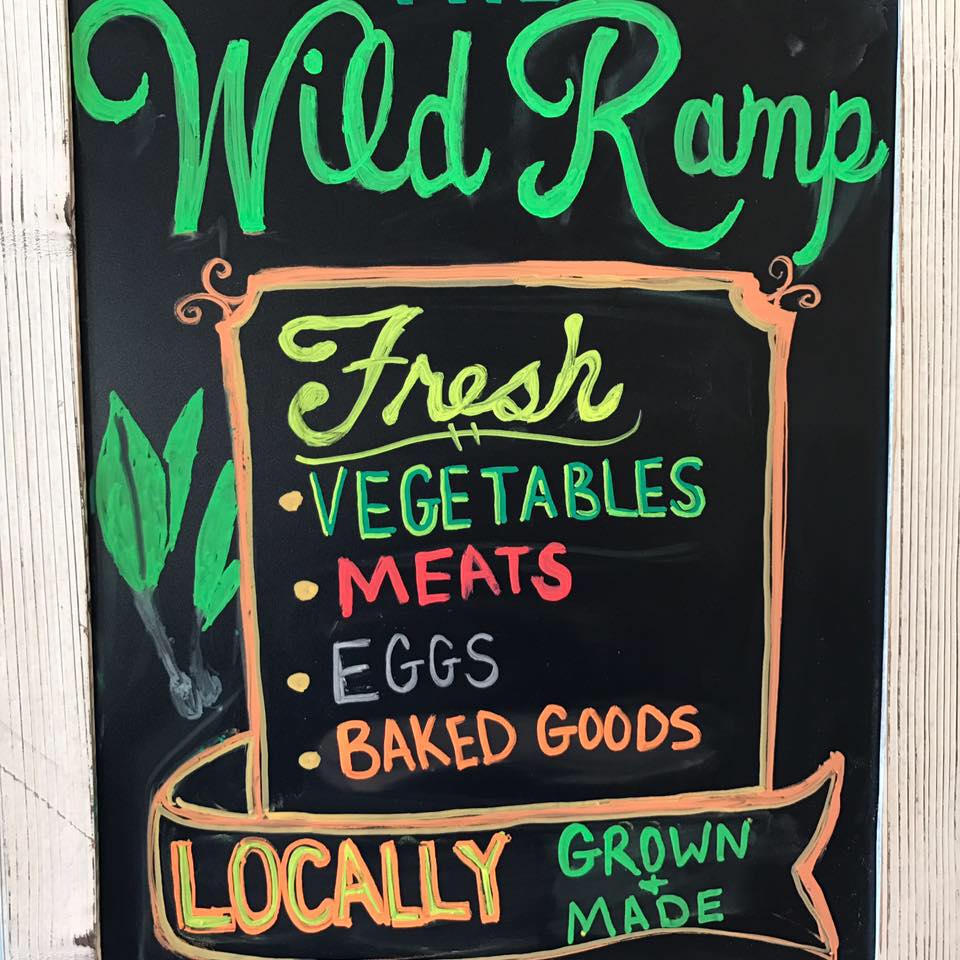 Wild Ramp
Fresh
• VEGETABLES
• MEATS
• EGGS
• BAKED GOODS
LOCALLY
GROWN
+
MADE